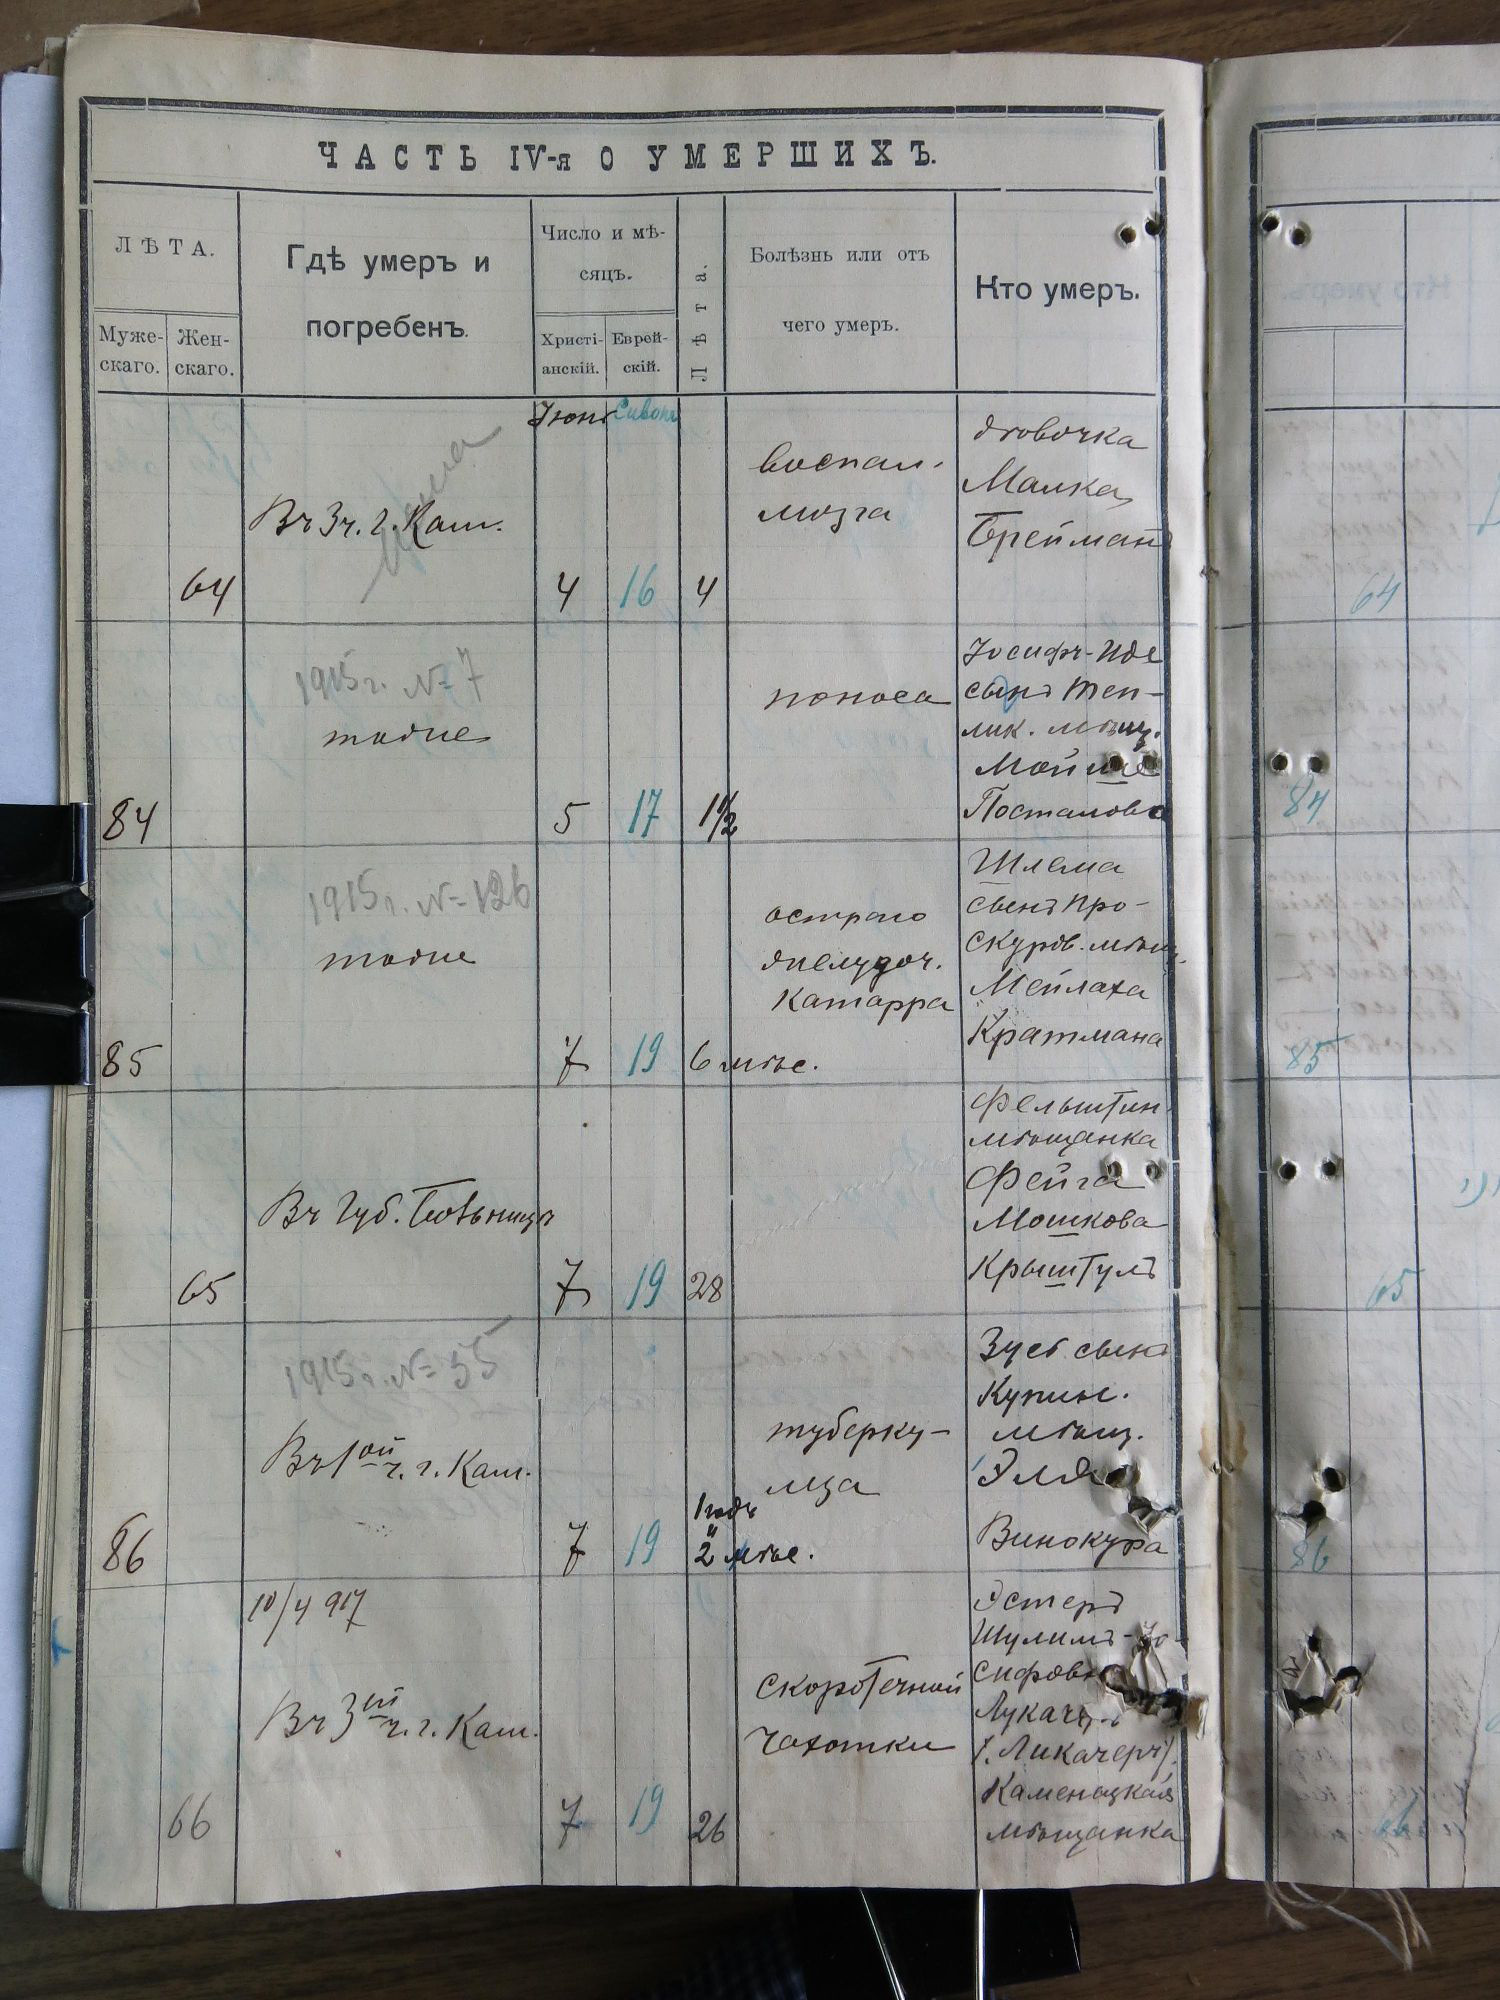 ЧАСТЬ IV-я О УМЕРШИХЪ.
ЛѢТА.
Муже-
скаго.
Жен-
скаго.
Гдѣ умеръ и
погребенъ.
Число и мѣ-
сяцъ.
Христі-
анскій.
Еврей-
скій.
Лѣта.
Болѣзнь или отъ
чего умеръ.
Кто умеръ.
Іюнь
Сивонъ
64
Въ 3 ч. г. Кам.
4
16
4
воспал.
мозга
дѣвочка
Малка
Брейманъ
84
1915 г. № 7
тоже
5
17
1 1/2
поноса
Іосифъ-Иде
сынъ Теп-
лик. мѣщ.
Мойше
Посталова
85
1915 г. № 126
тоже
7
19
6 мѣс.
остраго
желудоч.
катарра
Шлема
сынъ Про-
скуров. мѣщ.
Мейлаха
Кратмана
65
Въ Губ. больницѣ
7
19
28
Фельштин.
мѣщанка
Фейга
Мошкова
Крыштулъ
86
1915 г. № 55
Въ 1ой ч. г. Кам.
7
19
1 годъ
и
2 мѣс.
туберку-
лза
Зусь сынъ
Купин.
мѣщ.
Винокура
66
10/4 917
Въ 3й ч. г. Кам.
7
19
26
скоротечной
чахотки
Эстеръ
Шулимъ-Іо-
сифовна
(Ликачеръ).
Каменецкая
мѣщанка
Кто умеръ.
64
84
85
65
86
66